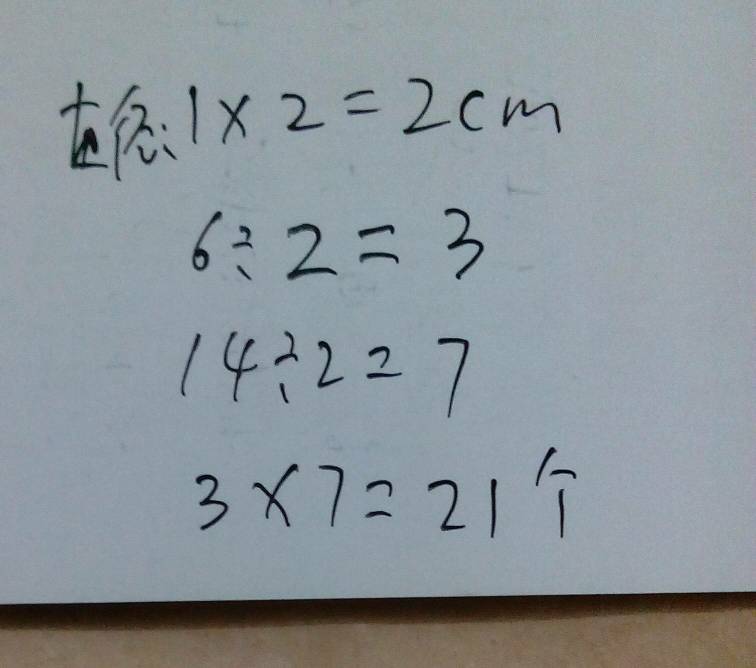 直径:1×2=2cm
6÷2=3
14÷2=7
3×7=21个